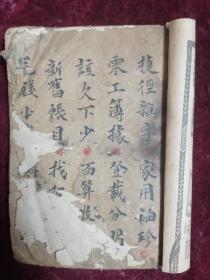 捷徑雜字　家用袖珍
零工簿據　登載分明
該欠下少　面算
新舊帳目　找
少